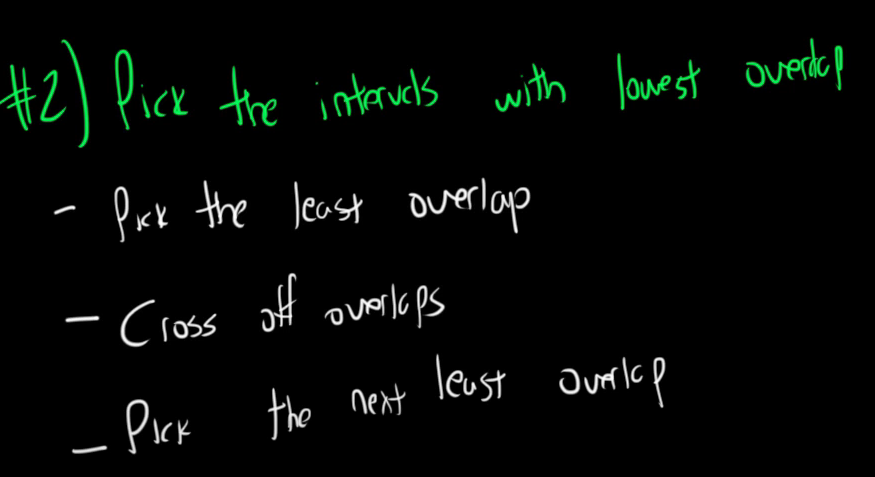 #2) Pick the intervals with lowest overlap
- Pick the least overlap
- Cross off overlaps
- Pick the next least overlap